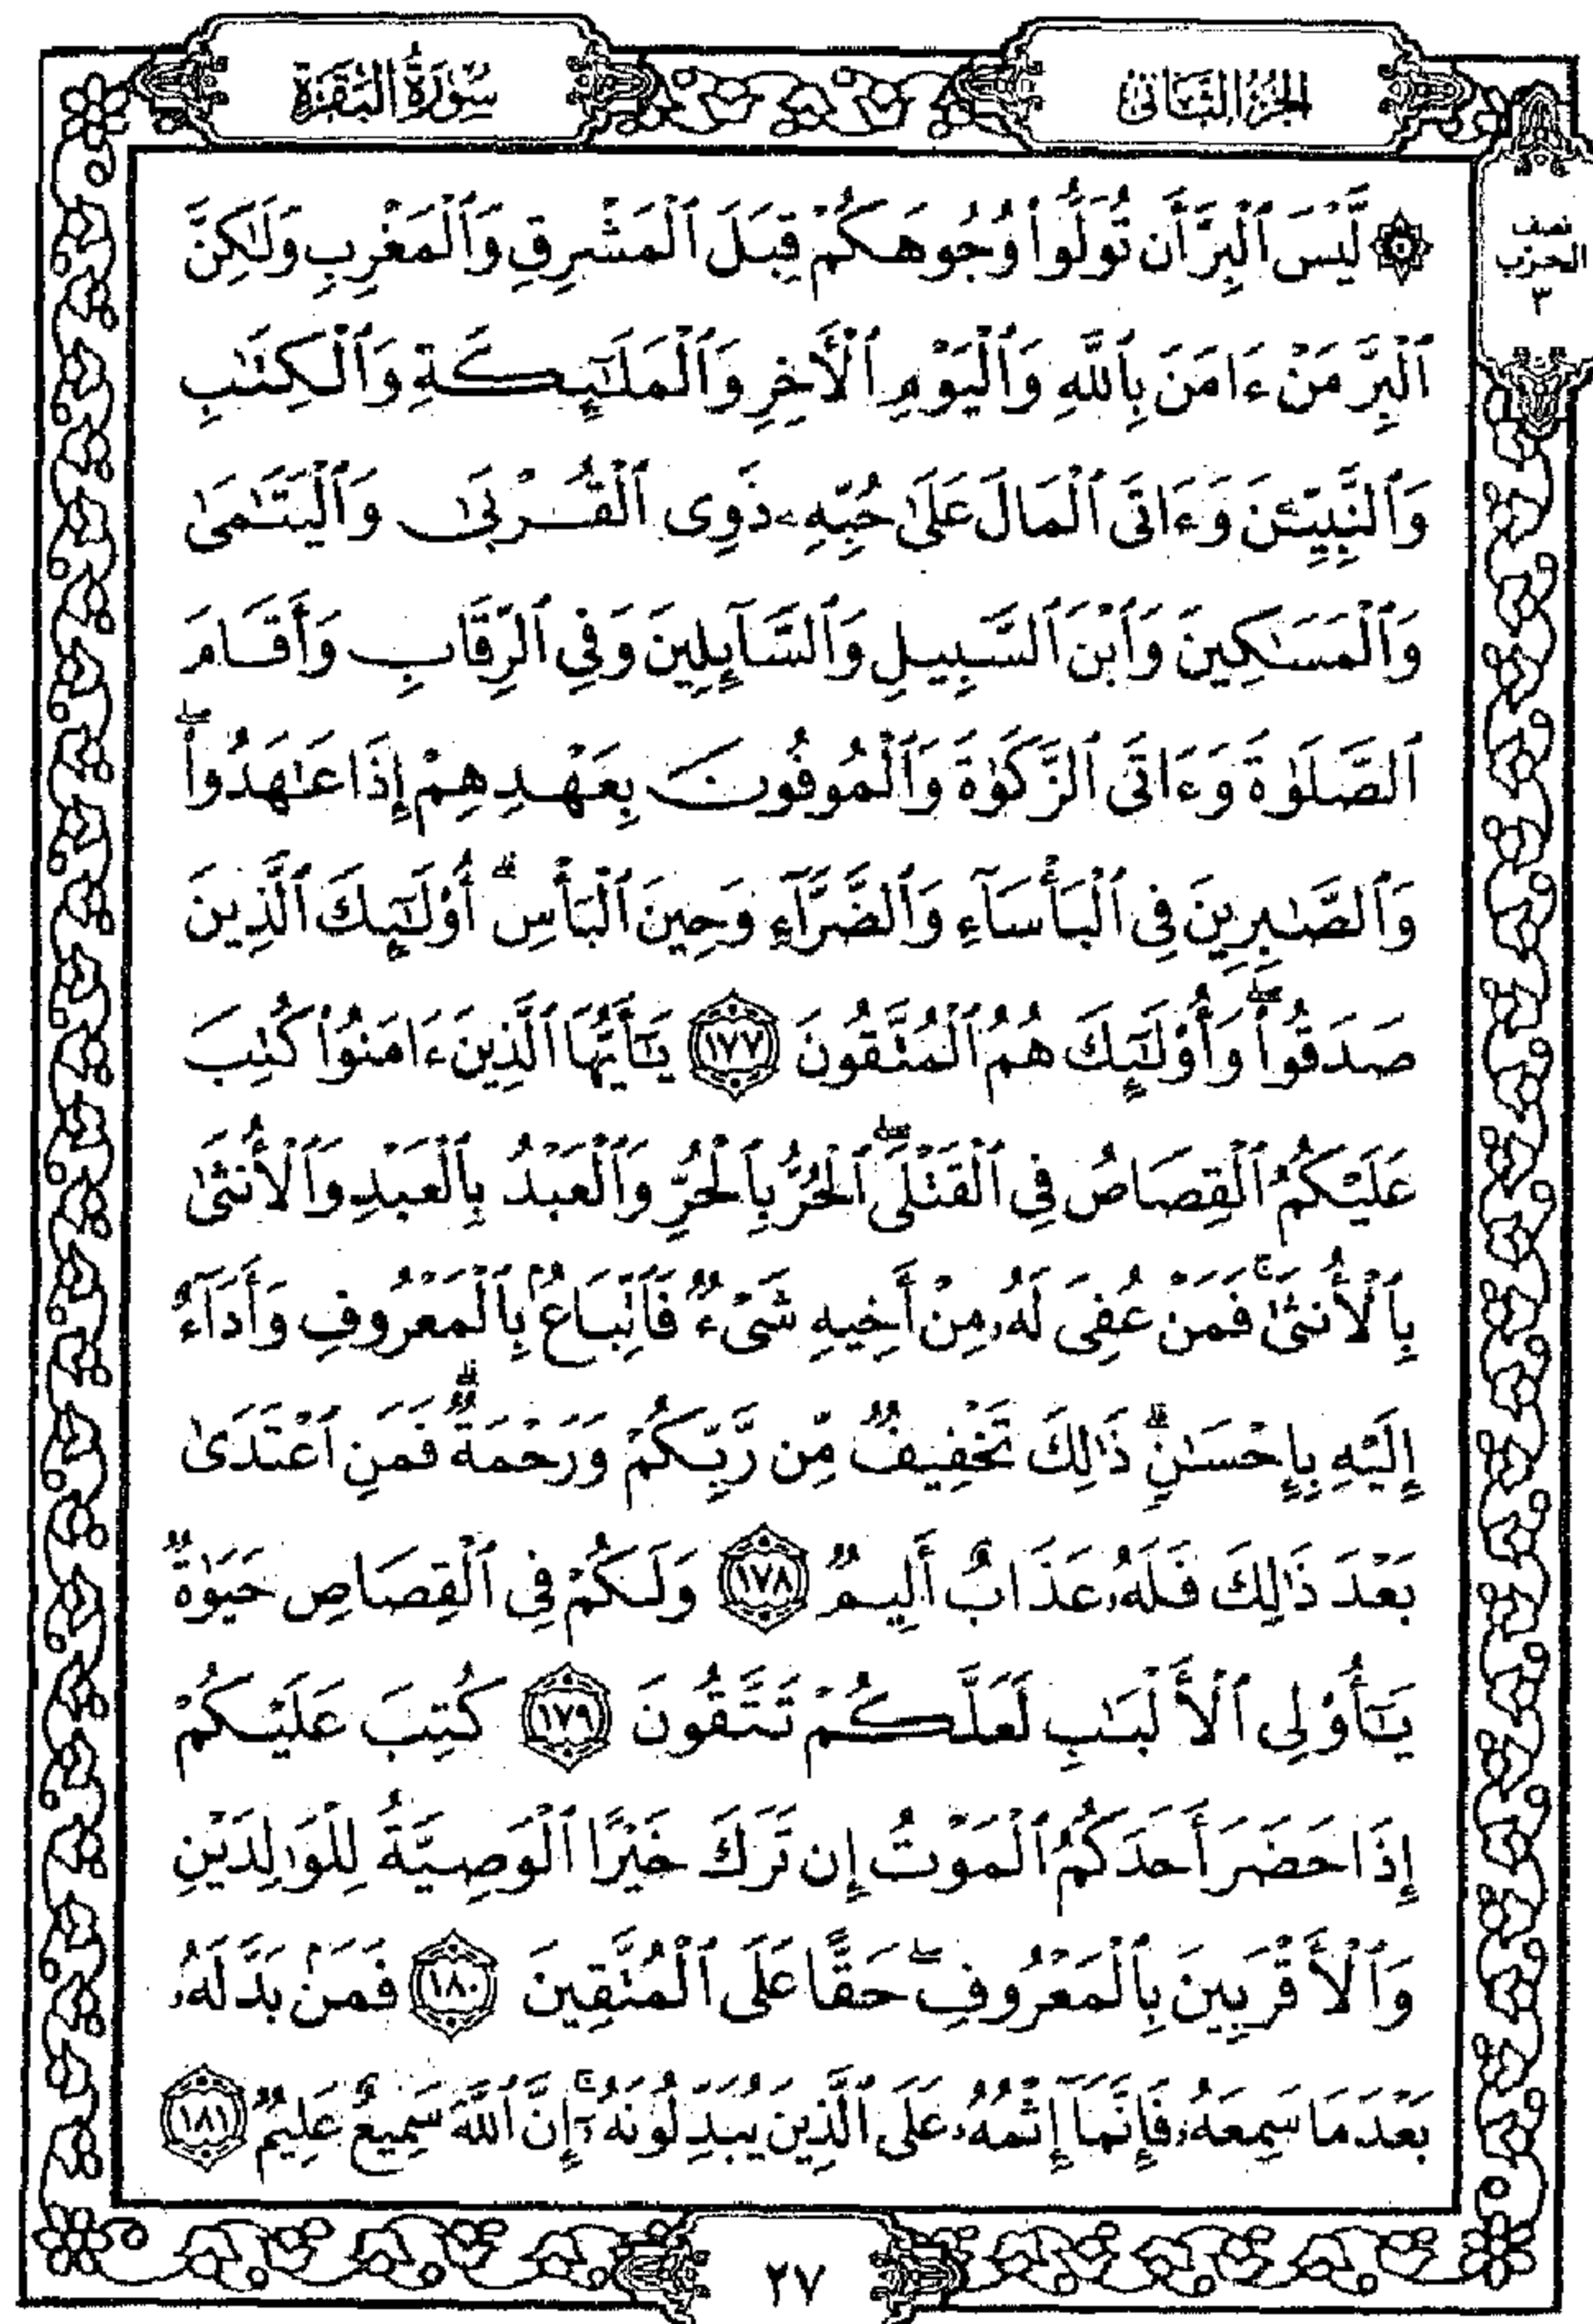 الجزء الثاني
سورة البقرة
نصف
الحزب
٣
۞ لَّيْسَ ٱلْبِرَّ أَن تُوَلُّوا۟ وُجُوهَكُمْ قِبَلَ ٱلْمَشْرِقِ وَٱلْمَغْرِبِ وَلَـٰكِنَّ
ٱلْبِرَّ مَنْ ءَامَنَ بِٱللَّهِ وَٱلْيَوْمِ ٱلْـَٔاخِرِ وَٱلْمَلَـٰٓئِكَةِ وَٱلْكِتَـٰبِ
وَٱلنَّبِيِّـۧنَ وَءَاتَى ٱلْمَالَ عَلَىٰ حُبِّهِۦ ذَوِى ٱلْقُرْبَىٰ وَٱلْيَتَـٰمَىٰ
وَٱلْمَسَـٰكِينَ وَٱبْنَ ٱلسَّبِيلِ وَٱلسَّآئِلِينَ وَفِى ٱلرِّقَابِ وَأَقَامَ
ٱلصَّلَوٰةَ وَءَاتَى ٱلزَّكَوٰةَ وَٱلْمُوفُونَ بِعَهْدِهِمْ إِذَا عَـٰهَدُوا۟ ۖ
وَٱلصَّـٰبِرِينَ فِى ٱلْبَأْسَآءِ وَٱلضَّرَّآءِ وَحِينَ ٱلْبَأْسِ ۗ أُو۟لَـٰٓئِكَ ٱلَّذِينَ
صَدَقُوا۟ ۖ وَأُو۟لَـٰٓئِكَ هُمُ ٱلْمُتَّقُونَ ١٧٧ يَـٰٓأَيُّهَا ٱلَّذِينَ ءَامَنُوا۟ كُتِبَ
عَلَيْكُمُ ٱلْقِصَاصُ فِى ٱلْقَتْلَى ۖ ٱلْحُرُّ بِٱلْحُرِّ وَٱلْعَبْدُ بِٱلْعَبْدِ وَٱلْأُنثَىٰ
بِٱلْأُنثَىٰ ۚ فَمَنْ عُفِىَ لَهُۥ مِنْ أَخِيهِ شَىْءٌ فَٱتِّبَاعٌۢ بِٱلْمَعْرُوفِ وَأَدَآءٌ
إِلَيْهِ بِإِحْسَـٰنٍ ۗ ذَٰلِكَ تَخْفِيفٌ مِّن رَّبِّكُمْ وَرَحْمَةٌ ۗ فَمَنِ ٱعْتَدَىٰ
بَعْدَ ذَٰلِكَ فَلَهُۥ عَذَابٌ أَلِيمٌ ١٧٨ وَلَكُمْ فِى ٱلْقِصَاصِ حَيَوٰةٌ
يَـٰٓأُو۟لِى ٱلْأَلْبَـٰبِ لَعَلَّكُمْ تَتَّقُونَ ١٧٩ كُتِبَ عَلَيْكُمْ
إِذَا حَضَرَ أَحَدَكُمُ ٱلْمَوْتُ إِن تَرَكَ خَيْرًا ٱلْوَصِيَّةُ لِلْوَٰلِدَيْنِ
وَٱلْأَقْرَبِينَ بِٱلْمَعْرُوفِ ۖ حَقًّا عَلَى ٱلْمُتَّقِينَ ١٨٠ فَمَنۢ بَدَّلَهُۥ
بَعْدَ مَا سَمِعَهُۥ فَإِنَّمَآ إِثْمُهُۥ عَلَى ٱلَّذِينَ يُبَدِّلُونَهُۥٓ ۚ إِنَّ ٱللَّهَ سَمِيعٌ عَلِيمٌ ١٨١
٢٧